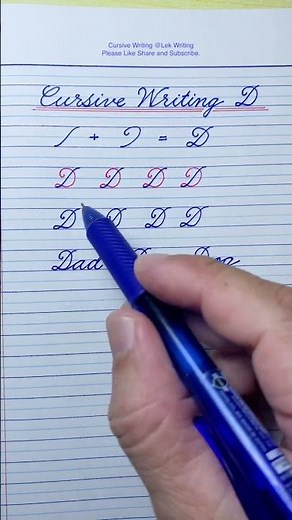 Cursive Writing @Lek Writing
Please Like Share and Subscribe.
Cursive Writing D
+ = D
D D D D
D D D D
Dad Dog